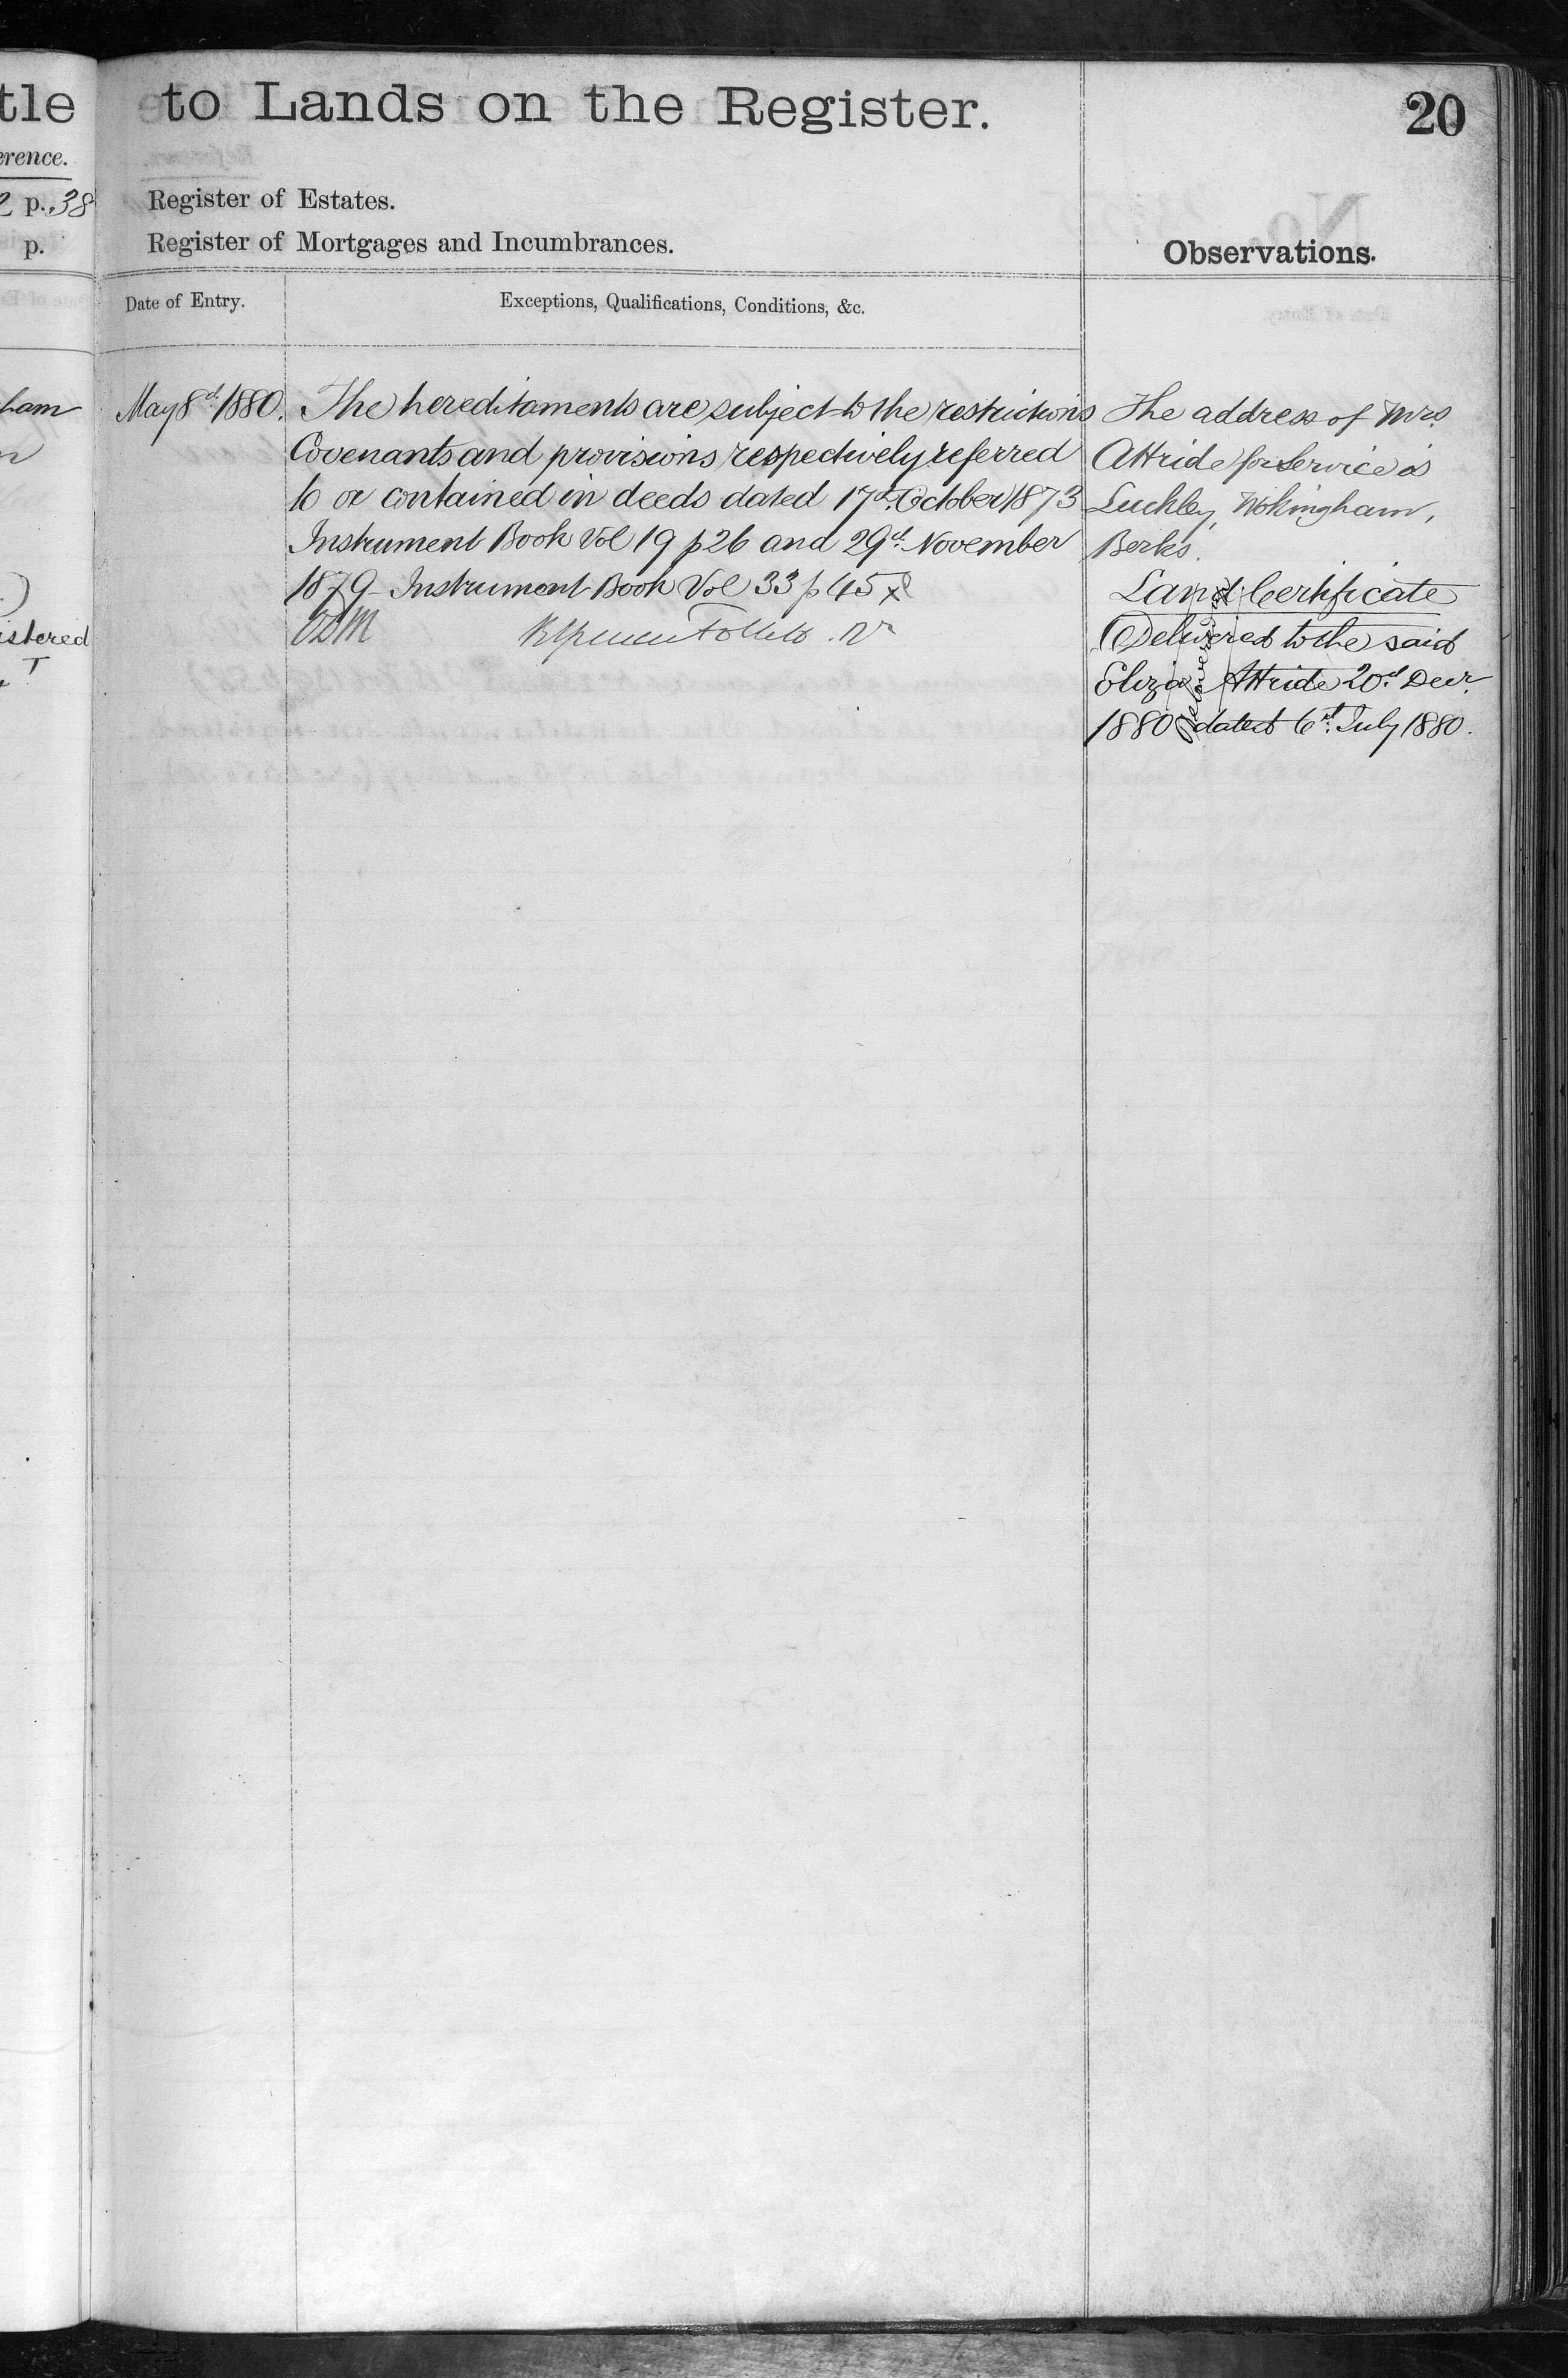 tle to Lands on the Register.
20
erence.
p. 38 Register of Estates.
p. Register of Mortgages and Incumbrances.
Observations.
Date of Entry.
Exceptions, Qualifications, Conditions, &c.
ham
istered
May 8th 1880.
The hereditaments are subject to the restrictions
Covenants and provisions respectively referred
to or contained in deeds dated 17th October 1873
Instrument Book Vol 19 p 26 and 29th November
1879 Instrument Book Vol 33 p 45
The address of Mrs.
Attride for service is
Luckley, Wokingham,
Berks.
Land Certificate
Delivered to the said
Eliza Attride 20th Decr.
1880 dated 6th July 1880.